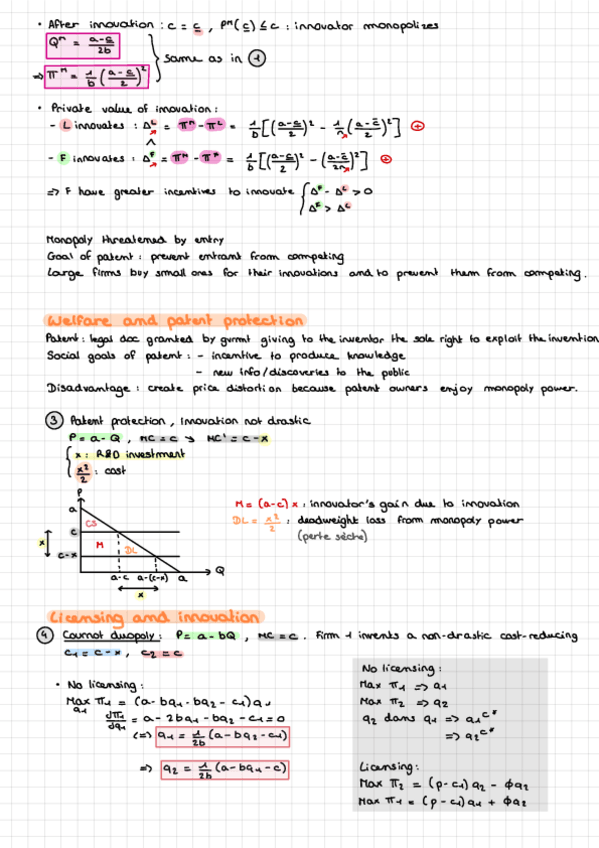 • After innovation : c = c̲ , pᵐ(c̲) ≤ c : innovator monopolizes
Qᵐ = (a-c̲)/2b
⇒ Πᵐ = 1/b ((a-c̲)/2)²
same as in ①
• Private value of innovation :
- L innovates : Δᴸ = Πᵐ - Πᴸ = 1/b [((a-c̲)/2)² - 1/n ((a-c̄)/2)²] ⊕
^
- F innovates : Δᶠ = Πᵐ - Π* = 1/b [((a-c̲)/2)² - ((a-c̄)/2n)²] ⊕
⇒ F have greater incentives to innovate { Δᶠ - Δᴸ > 0
Δᶠ > Δᴸ
Monopoly threatened by entry
Goal of patent : prevent entrant from competing
Large firms buy small ones for their innovations and to prevent them from competing.
Welfare and patent protection
Patent : legal doc granted by gvrmt giving to the inventor the sole right to exploit the invention
Social goals of patent : - incentive to produce knowledge
- new info/discoveries to the public
Disadvantage : create price distortion because patent owners enjoy monopoly power.
③ Patent protection, Innovation not drastic
P = a - Q , MC = c → MC' = c - x
x : R&D investment
x²/2 : cost
P
a
CS
c
x
M
DL
c-x
a-c a-(c-x) a Q
x
M = (a-c) x : innovator's gain due to innovation
DL = x²/2 : deadweight loss from monopoly power
(perte sèche)
Licensing and innovation
④ Cournot duopoly : P = a - bQ , MC = c . Firm 1 invents a non-drastic cost-reducing
c₁ = c - x , c₂ = c
• No licensing :
Max π₁ = (a - bq₁ - bq₂ - c₁) q₁
q₁
dπ₁/dq₁ = a - 2bq₁ - bq₂ - c₁ = 0
(=) q₁ = 1/2b (a - bq₂ - c₁)
⇒ q₂ = 1/2b (a - bq₁ - c)
No licensing :
Max π₁ ⇒ q₁
Max π₂ ⇒ q₂
q₂ dans q₁ ⇒ q₁ᶜ*
⇒ q₂ᶜ*
Licensing :
Max π₂ = (p - c₁) q₂ - ϕq₂
Max π₁ = (p - c₁) q₁ + ϕq₂